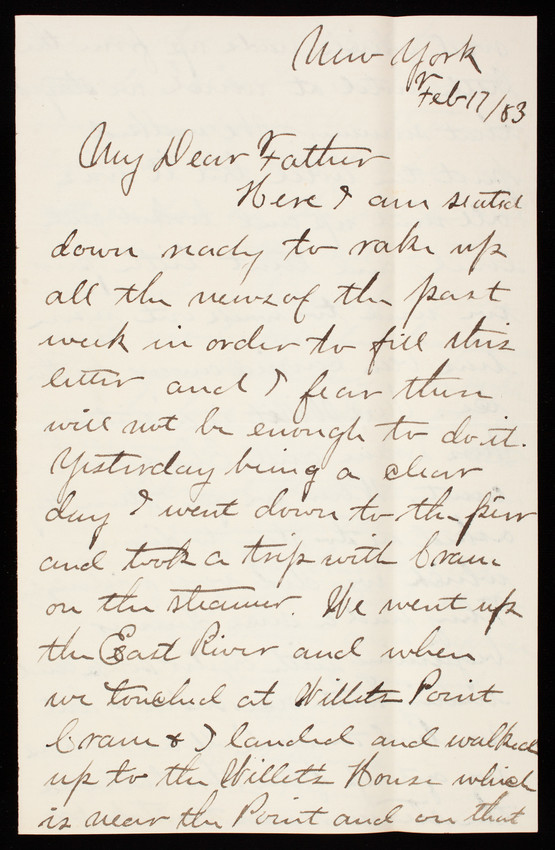 New York
Feb 17/83
My Dear Father
Here I am seated
down ready to rake up
all the news of the past
week in order to fill this
letter and I fear there
will not be enough to do it.
Yesterday being a clear
day I went down to the pier
and took a trip with Crane
on the steamer. We went up
the East River and when
we touched at Willets Point
Crane & I landed and walked
up to the Willets House which
is near the Point and on that